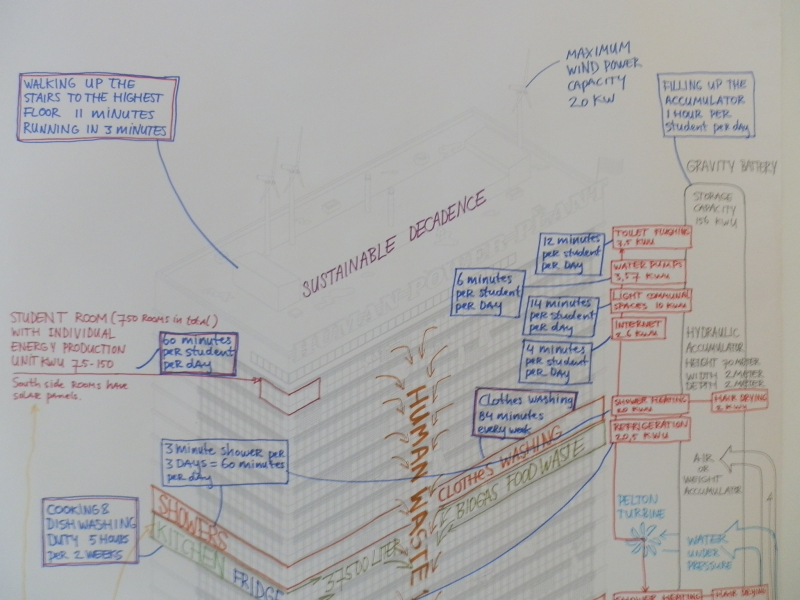 MAXIMUM
WIND POWER
CAPACITY
20 KW
WALKING UP THE
STAIRS TO THE HIGHEST
FLOOR 11 MINUTES
RUNNING IN 3 MINUTES
FILLING UP THE
ACCUMULATOR
1 HOUR PER
Student per day
GRAVITY BATTERY
STORAGE
CAPACITY
156 KWU
SUSTAINABLE DECADENCE
12 minutes
per student
per DAY
TOILET FLUSHING
7.5 KWU
6 minutes
per student
per DAY
WATER PUMPS
3,57 KWU
14 minutes
per student
per DAY
LIGHT COMMUNAL
SPACES 10 KWU
4 minutes
per student
per DAY
INTERNET
KWU
STUDENT ROOM (750 ROOMS in total)
WITH INDIVIDUAL
ENERGY PRODUCTION
UNIT KWU 75-150
South side ROOMS have
solar panels.
60 minutes
per student
per day
HYDRAULIC
ACCUMULATOR
HEIGHT 70 METER
WIDTH 2 METER
DEPTH 2 METER
Clothes washing
84 minutes
every week
SHOWER HEATING
20 KWU
HAIR DRYING
2 KWU
REFRIGERATION
20,5 KWU
3 minute shower per
3 DAYS = 60 minutes
per day
HUMAN WASTE
CLOTHES WASHING
BIOGAS FOOD WASTE
AIR
OR
WEIGHT
ACCUMULATOR
COOKING &
DISH WASHING
DUTY 5 HOURS
PER 2 WEEKS
SHOWERS
KITCHEN
FRIDGE
37500 LITER
PELTON
TURBINE
WATER
UNDER
PRESSURE
SHOWER HEATING
HAIR DRYING